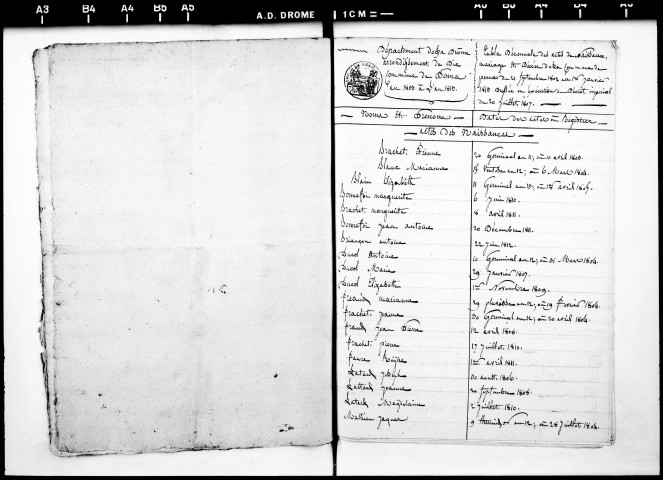 A3 B4 A4 B5 A5
A.D. DROME
1 CM
Département de la Drôme
arrondissement de Die
Commune de
an 1803 à l'an 1813.
Table Décennale des actes de Naissance,
mariage et Décès de la Commune de
du 21 septembre 1802 au 1er Janvier
1813 en exécution du Décret impérial
du 20 Juillet 1807.
Noms et Prénoms
Dates des actes au Registre
actes des Naissances
Brachet Etienne 20 Germinal an 11; ou 10 avril 1803.
Blanc Marianne 15 Ventôse an 12; ou 6 Mars 1804.
Blain Elizabeth 11 Germinal an 13; ou
Bonnefoi marguerite 6 Juin 1810.
Brachet marguerite 8 avril 1811.
Bonnefoi jean antoine 20 Décembre 1811.
Briançon antoine 22 Juin 1812.
Antoine 10 Germinal an 12; ou 31 Mars 1804.
Marie 29 Janvier 1807.
Elizabeth 1er Novembre 1809.
marianne 29 pluviôse an 12; ou 19 février 1804.
frachet jeanne 30 Germinal an 12; ou 20 avril 1804.
fraud jean Pierre 12 avril 1806.
frachet pierre 17 Juillet 1810.
faure 1er avril 1811.
Latard Joseph 30 août 1806.
Latard jeanne 20 Septembre 1808.
Latard Magdelaine 2 Juillet 1810.
Mathieu jaques 9 thermidor an 12; ou 28 Juillet 1804.